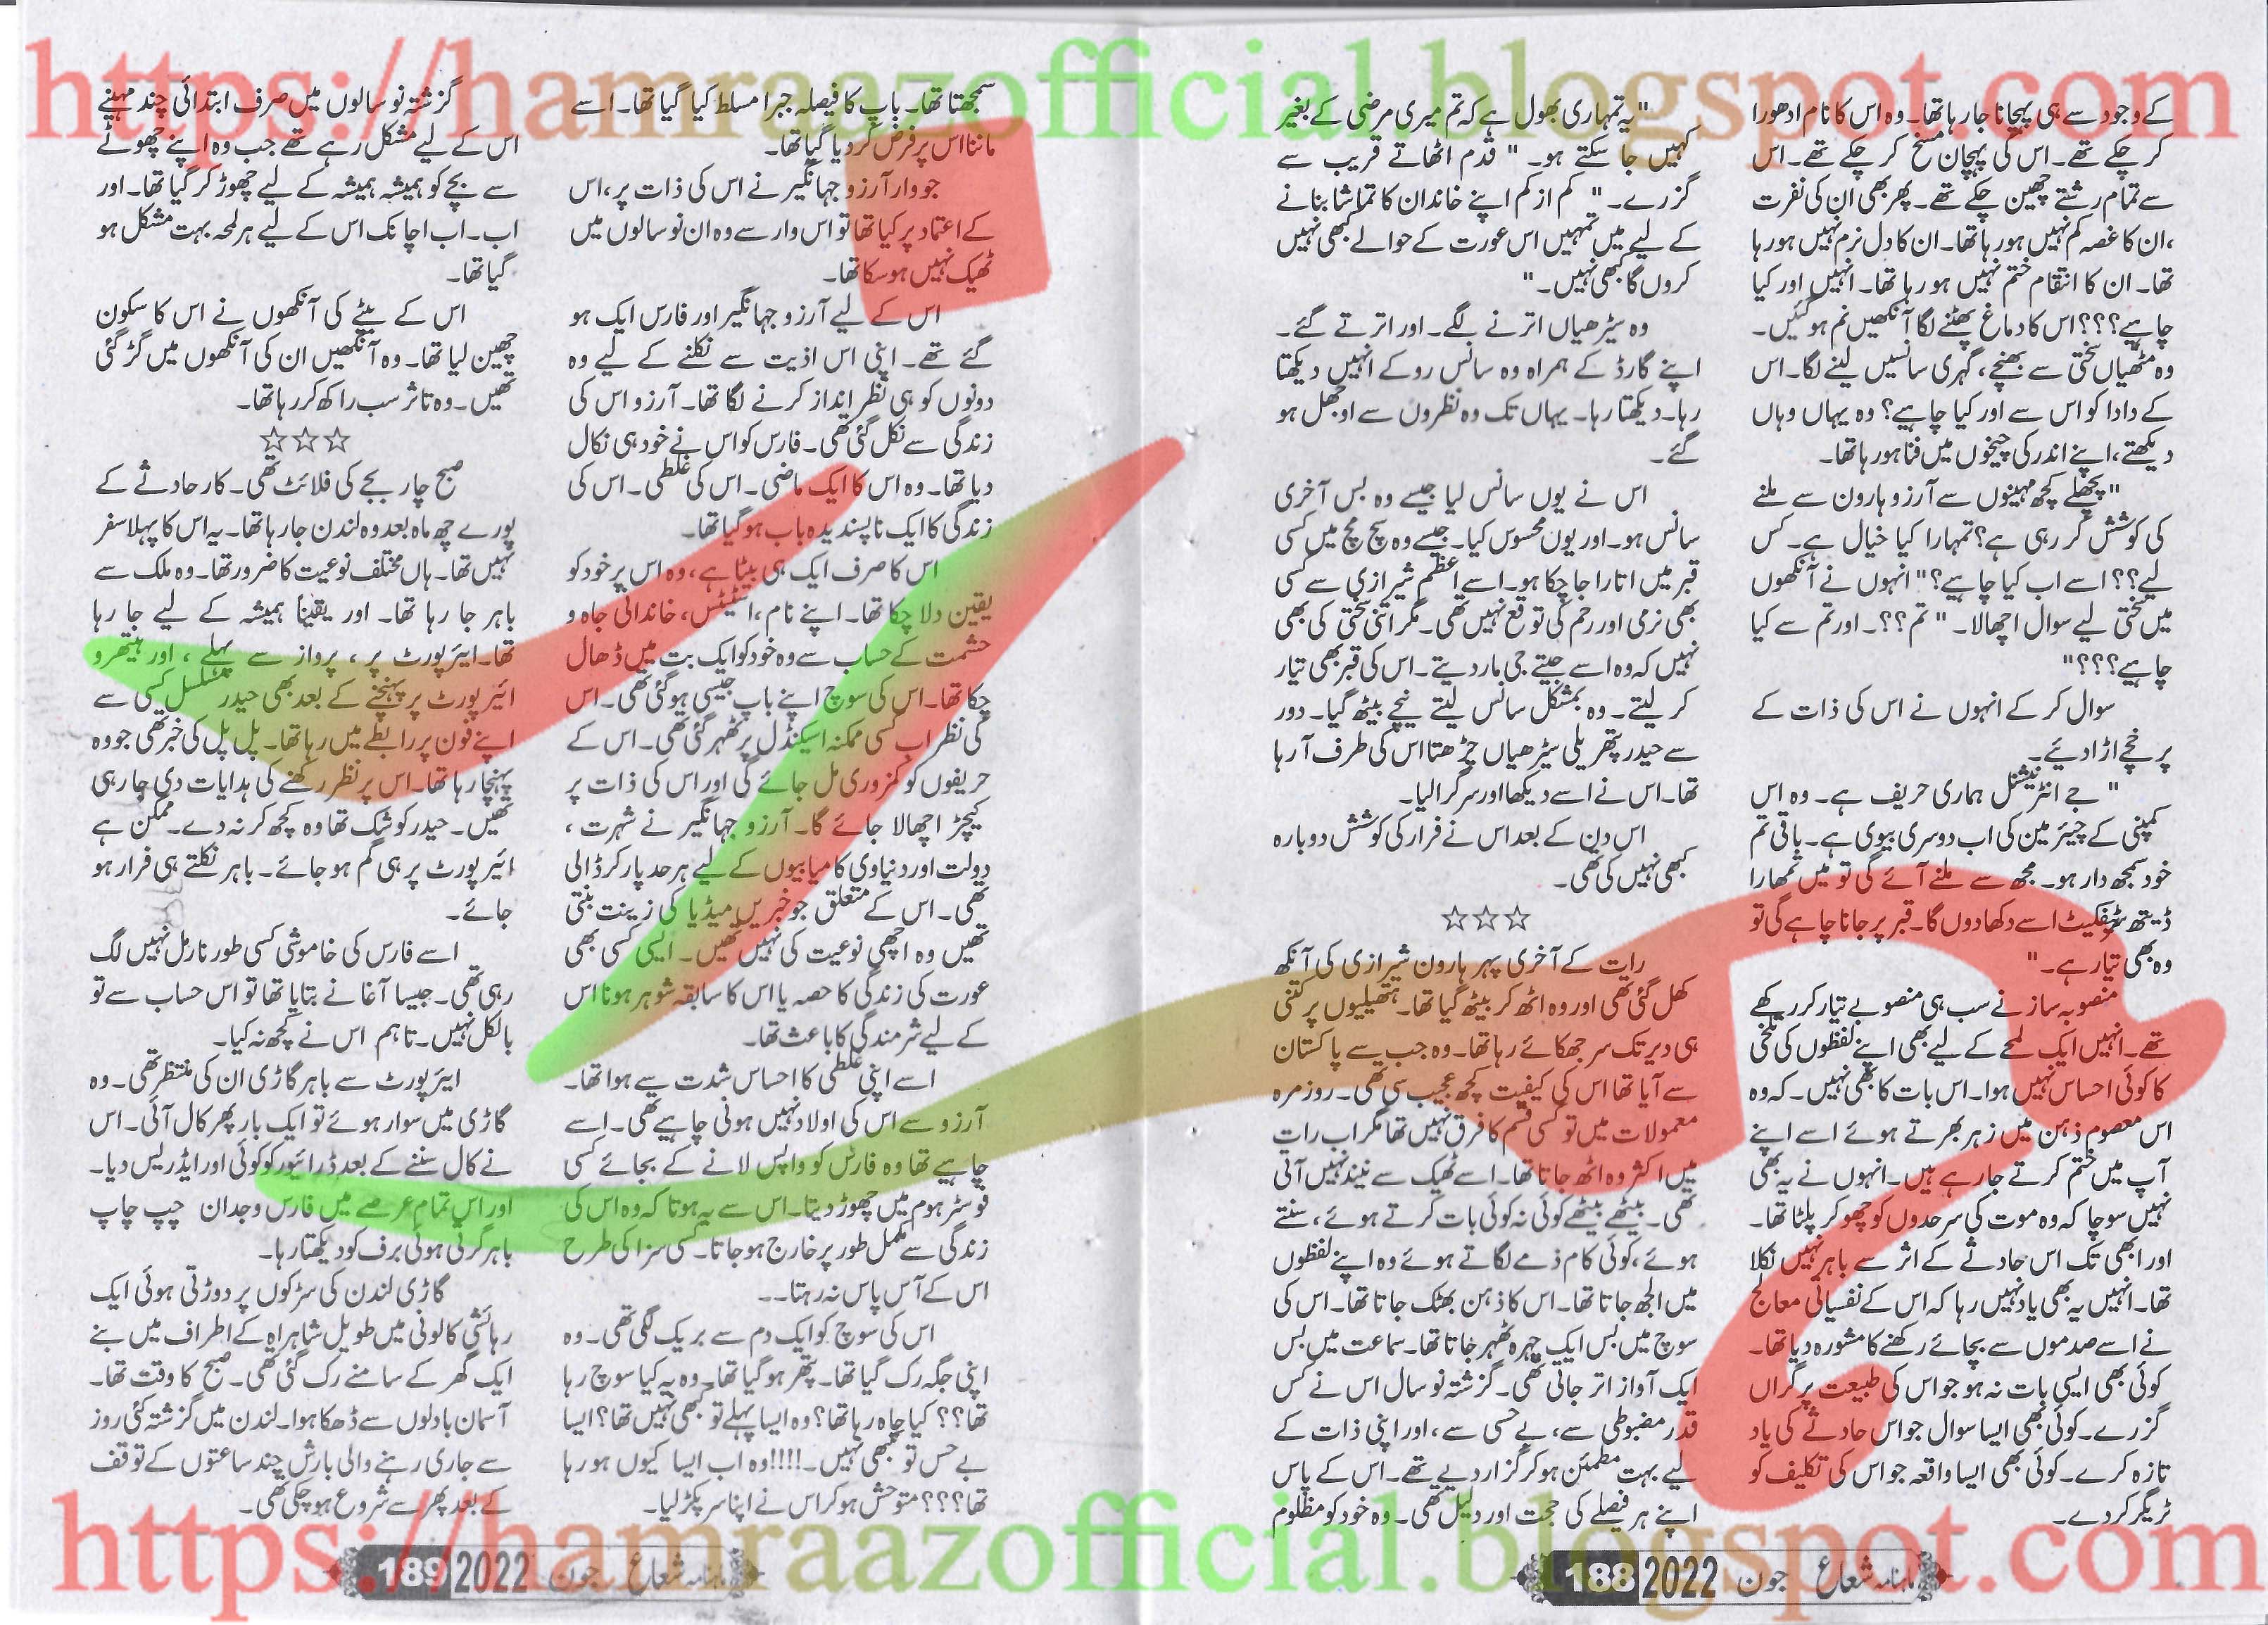 https://hamraazofficial.blogspot.com
کے وجود سے ہی پہچانا جا رہا تھا۔ وہ اس کا نام ادھورا
کر چکے تھے۔ اس کی پہچان مسخ کر چکے تھے۔ اس
سے تمام رشتے چھین چکے تھے۔ پھر بھی ان کی نفرت
،ان کا غصہ کم نہیں ہو رہا تھا۔ ان کا دل نرم نہیں ہو رہا
تھا۔ ان کا انتقام ختم نہیں ہو رہا تھا۔ انہیں اور کیا
چاہیے؟؟؟ اس کا دماغ پھٹنے لگا آنکھیں نم ہو گئیں۔
وہ مٹھیاں سختی سے بھینچے، گہری سانسیں لینے لگا۔ اس
کے دادا کو اس سے اور کیا چاہیے؟ وہ یہاں وہاں
دیکھتے، اپنے اندر کی چیخوں میں فنا ہو رہا تھا۔
"پچھلے کچھ مہینوں سے آرزو ہارون سے ملنے
کی کوشش کر رہی ہے؟ تمہارا کیا خیال ہے۔ کس
لیے؟؟ اسے اب کیا چاہیے؟" انہوں نے آنکھوں
میں سختی لیے سوال اچھالا۔ "تم؟؟۔ اور تم سے کیا
چاہیے؟؟؟"
سوال کر کے انہوں نے اس کی ذات کے
پرخچے اڑا دیئے۔
"جے انٹرنیشنل ہماری حریف ہے۔ وہ اس
کمپنی کے چیئرمین کی اب دوسری بیوی ہے۔ باقی تم
خود سمجھ دار ہو۔ مجھ سے ملنے آئے گی تو میں تمھارا
ڈیتھ سرٹیفکیٹ اسے دکھا دوں گا۔ قبر پر جانا چاہے گی تو
وہ بھی تیار ہے۔"
منصوبہ ساز نے سب ہی منصوبے تیار کر رکھے
تھے۔ انہیں ایک لمحے کے لیے بھی اپنے لفظوں کی تلخی
کا کوئی احساس نہیں ہوا۔ اس بات کا بھی نہیں۔ کہ وہ
اس معصوم ذہن میں زہر بھرتے ہوئے اسے اپنے
آپ میں ختم کرتے جا رہے ہیں۔ انہوں نے یہ بھی
نہیں سوچا کہ وہ موت کی سرحدوں کو چھو کر پلٹا تھا۔
اور ابھی تک اس حادثے کے اثر سے باہر نہیں نکلا
تھا۔ انہیں یہ بھی یاد نہیں رہا کہ اس کے نفسیاتی معالج
نے اسے صدموں سے بچائے رکھنے کا مشورہ دیا تھا۔
کوئی بھی ایسی بات نہ ہو جو اس کی طبیعت پر گراں
گزرے۔ کوئی بھی ایسا سوال جو اس حادثے کی یاد
تازہ کرے۔ کوئی بھی ایسا واقعہ جو اس کی تکلیف کو
ٹریگر کر دے۔
"یہ تمہاری بھول ہے کہ تم میری مرضی کے بغیر
کہیں جا سکتے ہو۔" قدم اٹھاتے قریب سے
گزرے۔ "کم از کم اپنے خاندان کا تماشا بنانے
کے لیے میں تمہیں اس عورت کے حوالے کبھی نہیں
کروں گا کبھی نہیں۔"
وہ سیڑھیاں اترنے لگے۔ اور اترتے گئے۔
اپنے گارڈ کے ہمراہ وہ سانس روکے انہیں دیکھتا
رہا۔ دیکھتا رہا۔ یہاں تک وہ نظروں سے اوجھل ہو
گئے۔
اس نے یوں سانس لیا جیسے وہ بس آخری
سانس ہو۔ اور یوں محسوس کیا۔ جیسے وہ سچ مچ میں کسی
قبر میں اتارا جا چکا ہو۔ اسے اعظم شیرازی سے کسی
بھی نرمی اور رحم کی توقع نہیں تھی۔ مگر اتنی سختی کی بھی
نہیں کہ وہ اسے جیتے جی مار دیتے۔ اس کی قبر بھی تیار
کر لیتے۔ وہ بمشکل سانس لیتے نیچے بیٹھ گیا۔ دور
سے حیدر پتھریلی سیڑھیاں چڑھتا اس کی طرف آ رہا
تھا۔ اس نے اسے دیکھا اور سر گرا لیا۔
اس دن کے بعد اس نے فرار کی کوشش دوبارہ
کبھی نہیں کی تھی۔
☆☆☆
رات کے آخری پہر ہارون شیرازی کی آنکھ
کھل گئی تھی اور وہ اٹھ کر بیٹھ گیا تھا۔ ہتھیلیوں پر کتنی
ہی دیر تک سر جھکائے رہا تھا۔ وہ جب سے پاکستان
سے آیا تھا اس کی کیفیت کچھ عجیب سی تھی۔ روزمرہ
معمولات میں تو کسی قسم کا فرق نہیں تھا مگر اب رات
میں اکثر وہ اٹھ جاتا تھا۔ اسے ٹھیک سے نیند نہیں آتی
تھی۔ بیٹھے بیٹھے کوئی نہ کوئی بات کرتے ہوئے، سنتے
ہوئے، کوئی کام ذمے لگاتے ہوئے وہ اپنے لفظوں
میں الجھ جاتا تھا۔ اس کا ذہن بھٹک جاتا تھا۔ اس کی
سوچ میں بس ایک چہرہ ٹھہر جاتا تھا۔ سماعت میں بس
ایک آواز اتر جاتی تھی۔ گزشتہ نو سال اس نے کس
قدر مضبوطی سے، بے حسی سے، اور اپنی ذات کے
لیے بہت مطمئن ہو کر گزار دیے تھے۔ اس کے پاس
اپنے ہر فیصلے کی حجت اور دلیل تھی۔ وہ خود کو مظلوم
ماہنامہ شعاع جون 2022 188
سمجھتا تھا۔ باپ کا فیصلہ جبرا مسلط کیا گیا تھا۔ اسے
ماننا اس پر فرض کر دیا گیا تھا۔
جو وار آرزو جہانگیر نے اس کی ذات پر، اس
کے اعتماد پر کیا تھا تو اس وار سے وہ ان نو سالوں میں
ٹھیک نہیں ہو سکا تھا۔
اس کے لیے آرزو جہانگیر اور فارس ایک ہو
گئے تھے۔ اپنی اس اذیت سے نکلنے کے لیے وہ
دونوں کو ہی نظر انداز کرنے لگا تھا۔ آرزو اس کی
زندگی سے نکل گئی تھی۔ فارس کو اس نے خود ہی نکال
دیا تھا۔ وہ اس کا ایک ماضی۔ اس کی غلطی۔ اس کی
زندگی کا ایک ناپسندیدہ باب ہو گیا تھا۔
اس کا صرف ایک ہی بیٹا ہے، وہ اس پر خود کو
یقین دلا چکا تھا۔ اپنے نام، اسٹیٹس، خاندانی جاہ و
حشمت کے حساب سے وہ خود کو ایک بت میں ڈھال
چکا تھا۔ اس کی سوچ اپنے باپ جیسی ہو گئی تھی۔ اس
کی نظر اب کسی ممکنہ اسکینڈل پر ٹھہر گئی تھی۔ اس کے
حریفوں کو کمزوری مل جائے گی اور اس کی ذات پر
کیچڑ اچھالا جائے گا۔ آرزو جہانگیر نے شہرت،
دولت اور دنیاوی کامیابیوں کے لیے ہر حد پار کر ڈالی
تھی۔ اس کے متعلق جو خبریں میڈیا کی زینت بنتی
تھیں وہ اچھی نوعیت کی نہیں تھیں۔ ایسی کسی بھی
عورت کی زندگی کا حصہ یا اس کا سابقہ شوہر ہونا اس
کے لیے شرمندگی کا باعث تھا۔
اسے اپنی غلطی کا احساس شدت سے ہوا تھا۔
آرزو سے اس کی اولاد نہیں ہونی چاہیے تھی۔ اسے
چاہیے تھا وہ فارس کو واپس لانے کے بجائے کسی
فوسٹر ہوم میں چھوڑ دیتا۔ اس سے یہ ہوتا کہ وہ اس کی
زندگی سے مکمل طور پر خارج ہو جاتا۔ کسی سزا کی طرح
اس کے آس پاس نہ رہتا۔۔
اس کی سوچ کو ایک دم سے بریک لگی تھی۔ وہ
اپنی جگہ رک گیا تھا۔ پتھر ہو گیا تھا۔ وہ یہ کیا سوچ رہا
تھا؟؟ کیا چاہ رہا تھا؟ وہ ایسا پہلے تو کبھی نہیں تھا؟ ایسا
بے حس تو کبھی نہیں۔!!!! وہ اب ایسا کیوں ہو رہا
تھا؟؟؟ متوحش ہو کر اس نے اپنا سر پکڑ لیا۔
گزشتہ نو سالوں میں صرف ابتدائی چند مہینے
اس کے لیے مشکل رہے تھے جب وہ اپنے چھوٹے
سے بچے کو ہمیشہ ہمیشہ کے لیے چھوڑ کر گیا تھا۔ اور
اب۔ اب اچانک اس کے لیے ہر لمحہ بہت مشکل ہو
گیا تھا۔
اس کے بیٹے کی آنکھوں نے اس کا سکون
چھین لیا تھا۔ وہ آنکھیں ان کی آنکھوں میں گڑ گئی
تھیں۔ وہ تاثر سب راکھ کر رہا تھا۔
☆☆☆
صبح چار بجے کی فلائٹ تھی۔ کار حادثے کے
پورے چھ ماہ بعد وہ لندن جا رہا تھا۔ یہ اس کا پہلا سفر
نہیں تھا۔ ہاں مختلف نوعیت کا ضرور تھا۔ وہ ملک سے
باہر جا رہا تھا۔ اور یقینا ہمیشہ کے لیے جا رہا
تھا۔ ایئرپورٹ پر، پرواز سے پہلے، اور ہیتھرو
ائیرپورٹ پر پہنچنے کے بعد بھی حیدر مسلسل کسی سے
اپنے فون پر رابطے میں رہا تھا۔ پل پل کی خبر تھی جو وہ
پہنچا رہا تھا۔ اس پر نظر رکھنے کی ہدایات دی جا رہی
تھیں۔ حیدر کو شک تھا وہ کچھ کر نہ دے۔ ممکن ہے
ائیرپورٹ پر ہی گم ہو جائے۔ باہر نکلتے ہی فرار ہو
جائے۔
اسے فارس کی خاموشی کسی طور نارمل نہیں لگ
رہی تھی۔ جیسا آغا نے بتایا تھا تو اس حساب سے تو
بالکل نہیں۔ تاہم اس نے کچھ نہ کیا۔
ایئرپورٹ سے باہر گاڑی ان کی منتظر تھی۔ وہ
گاڑی میں سوار ہوئے تو ایک بار پھر کال آئی۔ اس
نے کال سننے کے بعد ڈرائیور کو کوئی اور ایڈریس دیا۔
اور اس تمام عرصے میں فارس وجدان چپ چاپ
باہر گرتی ہوئی برف کو دیکھتا رہا۔
گاڑی لندن کی سڑکوں پر دوڑتی ہوئی ایک
رہائشی کالونی میں طویل شاہراہ کے اطراف میں بنے
ایک گھر کے سامنے رک گئی تھی۔ صبح کا وقت تھا۔
آسمان بادلوں سے ڈھکا ہوا۔ لندن میں گزشتہ کئی روز
سے جاری رہنے والی بارش چند ساعتوں کے توقف
کے بعد پھر سے شروع ہو چکی تھی۔
ماہنامہ شعاع جون 2022 189
https://hamraazofficial.blogspot.com